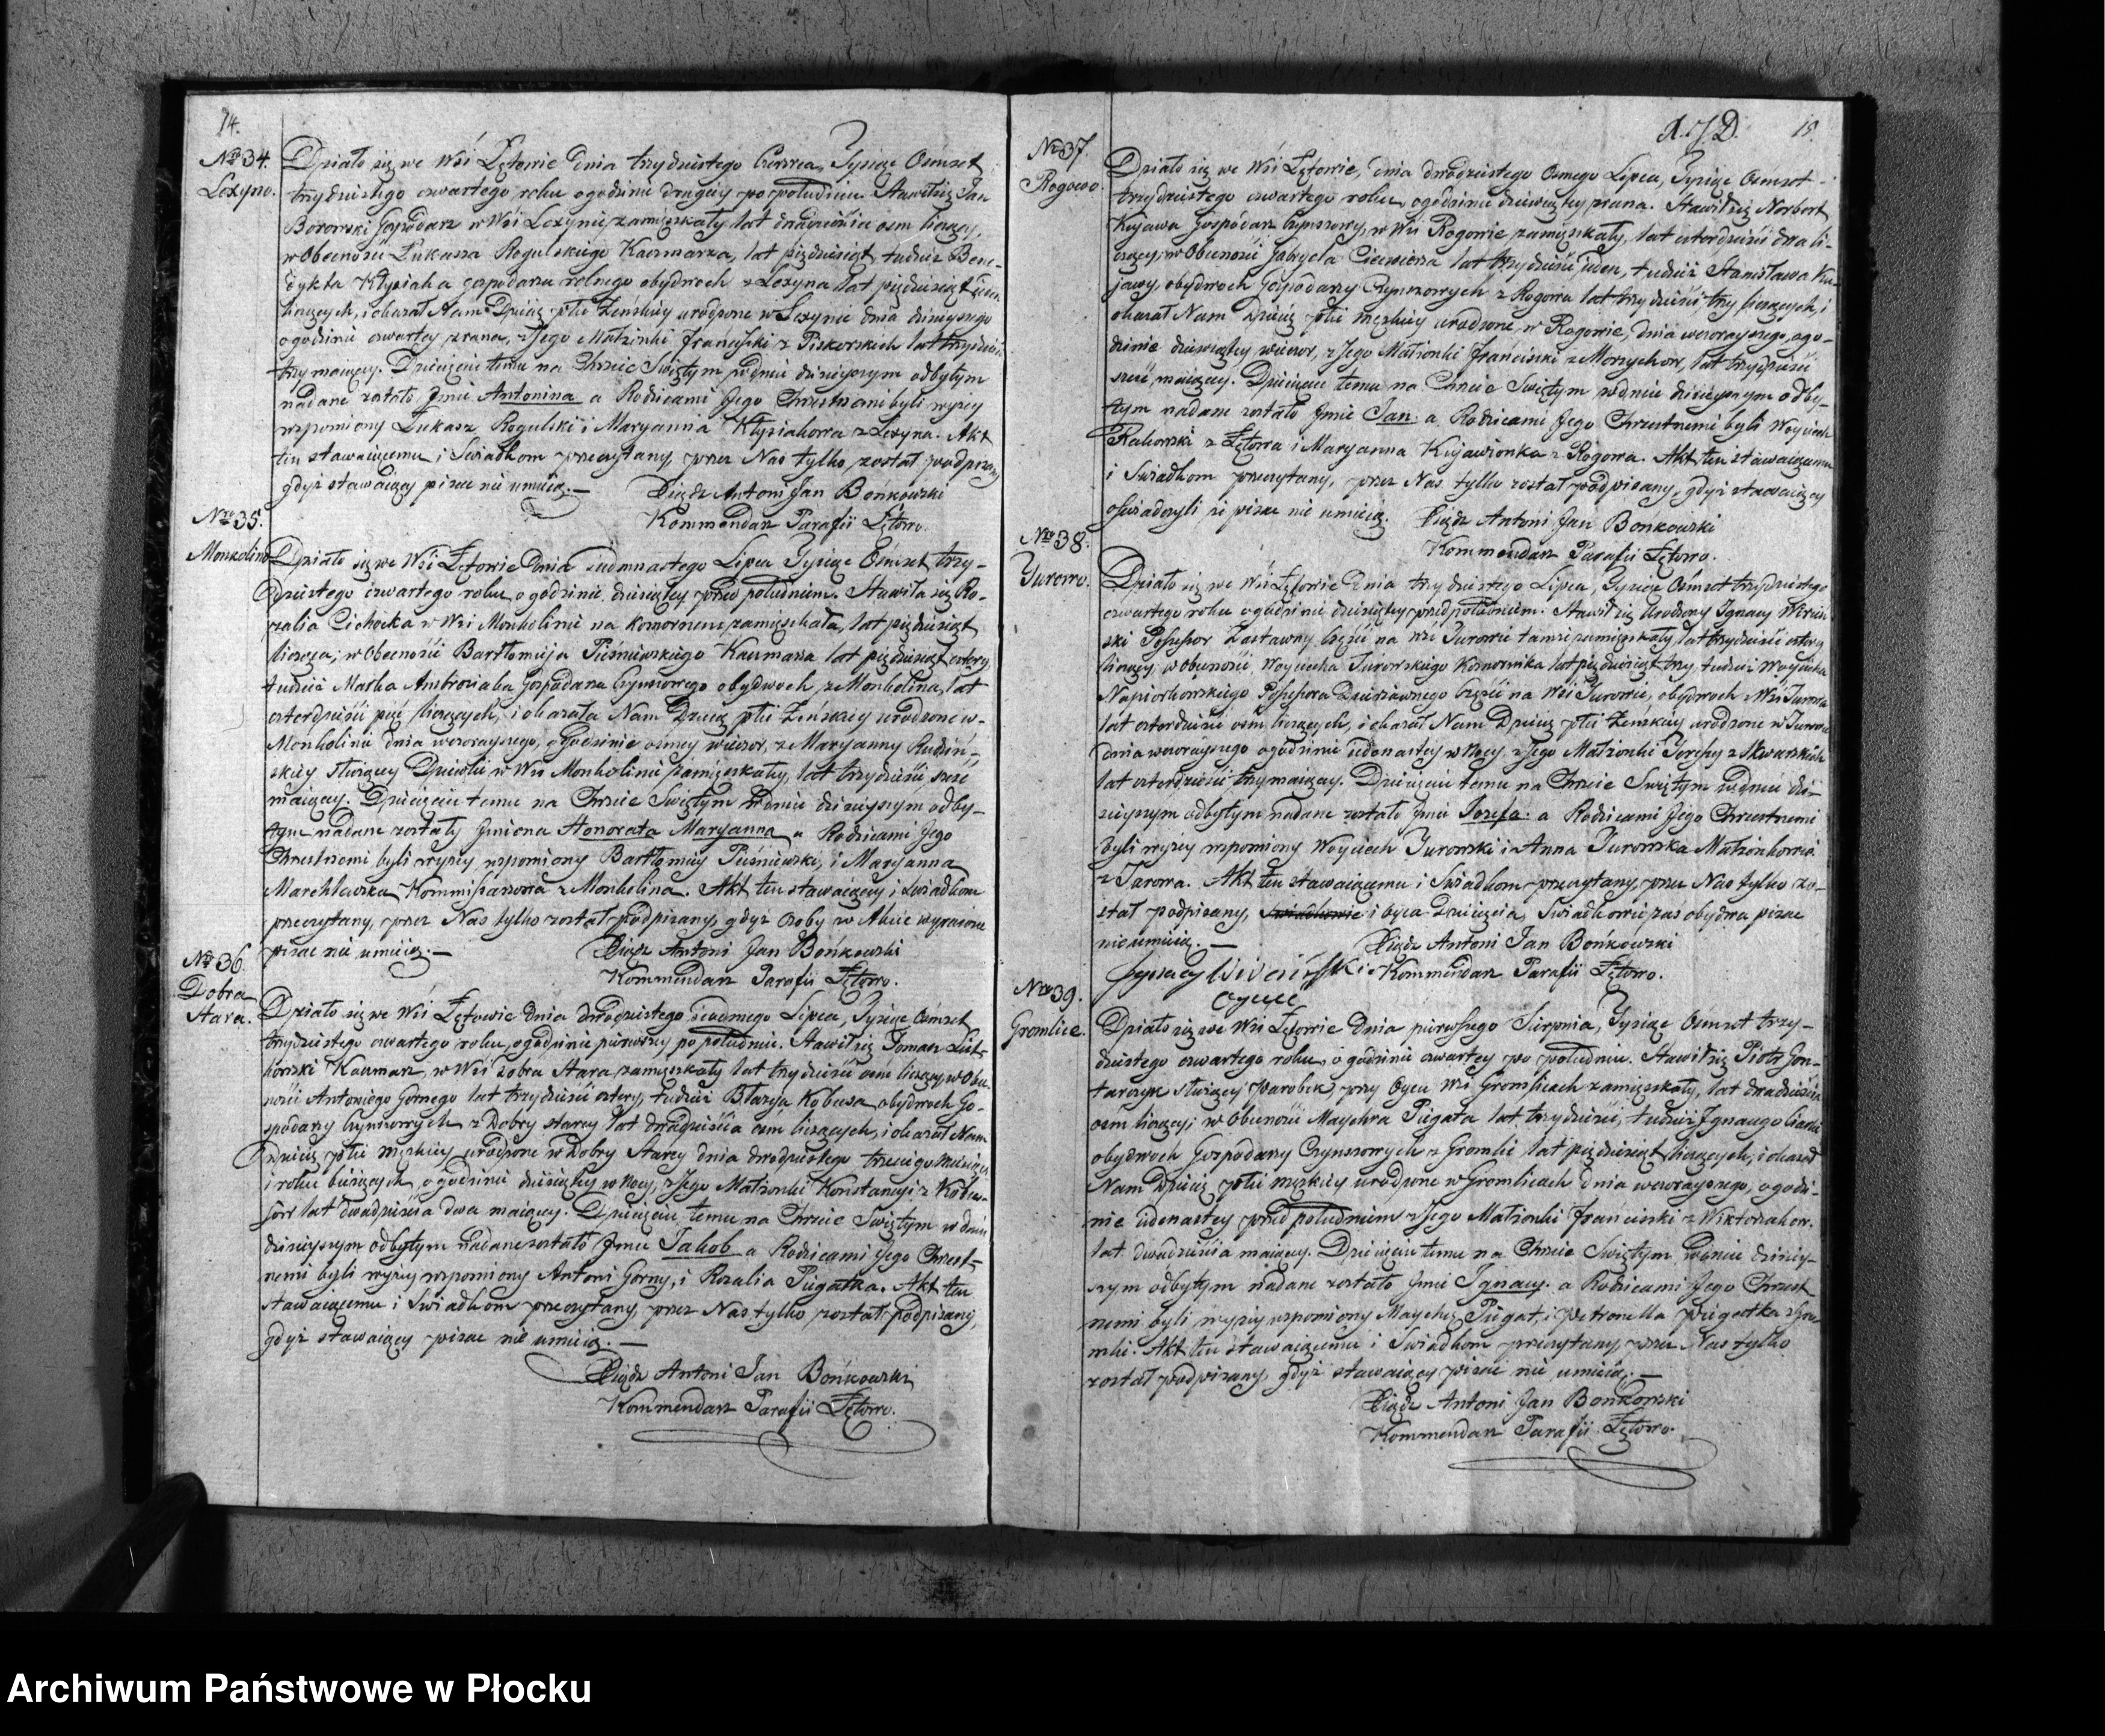 14.
Nro 34.
Lexyno.
Działo się we Wsi Łętowie dnia trzydziestego Czerwca, Tysiąc Osmset
trzydziestego czwartego roku o godzinie drugiey po południu. Stawił się Jan
Borowski Gospodarz w Wsi Lexynie zamieszkały lat dwadzieścia osm liczący,
w Obecności Łukasza Rogulskiego Kaczmarza, lat pięćdziesiąt, tudzież Bene-
dykta Kłysiaka gospodarza rolnego obydwoch z Lexyna lat pięćdziesiąt
liczących, i okazał Nam Dziecię płci Żeńskiey urodzone w Lexynie dnia dzisieyszego
o godzinie czwartey z rana, z Jego Małżonki Franciszki z Piskorskich lat trzydzieści
trzy maiącey. Dziecięciu temu na Chrzcie Swiętym w dniu dzisieyszym odbytym
nadane zostało Jmie Antonina a Rodzicami Jego Chrzestnemi byli wyżey
wspomiony Łukasz Rogulski i Maryanna Kłysiakowa z Lexyna. Akt
ten stawaiącemu i Swiadkom przeczytany, przez Nas tylko został podpisany
gdyż stawaiący pisac nie umieią.—
Xiądz Antoni Jan Bońkowski
Kommendarz Parafii Łętowo.
Nro 35.
Monkolino
Działo się we Wsi Łętowie Dnia siedmnastego Lipca Tysiąc Osmset trzy-
dziestego czwartego roku, o godzinie dziesiątey przed południem. Stawiła się Ro-
zalia Cichocka w Wsi Monkolinie na komornem zamięszkała, lat pięćdziesiąt
licząca; w Obecności Bartłomieja Piśniewskiego Kaczmarza lat pięćdziesiąt cztery,
tudzież Marka Ambroziaka Gospodarza Czynszowego obydwoch z Monkolina, lat
czterdzieści pięć liczących, i okazała Nam Dziecię płci Żeńskiey urodzone w-
Monkolinie dnia wczorayszego, o godzinie osmey wieczor, z Maryanny Rudziń-
skiey służącey Dziewki w Wsi Monkolinie zamięszkały, lat trzydzieści sześć
maiącey. Dziecięciu temu na Chrzcie Swiętym w dniu dzisieyszym odby-
tym nadane zostały Jmiona Honorata Maryanna a Rodzicami Jego
Chrzestnemi byli wyżey wspomiony Bartłomiey Piśniewski, i Maryanna
Marchlewska Kommissarzowa z Monkolina. Akt ten stawaiącey i Swiadkom
przeczytany, przez Nas tylko został podpisany, gdyż Osoby w Akcie wyrażone
pisac nie umieią.—
Xiądz Antoni Jan Bońkowski
Kommendarz Parafii Łętowo.
Nro 36.
Dobra
Stara.
Działo się we Wsi Łętowie dnia dwudziestego siodmego Lipca, Tysiąc Osmset
trzydziestego czwartego roku, o godzinie pierwszy po południu. Stawił się Tomasz
Kaczmarz, w Wsi Dobra Stara, zamięszkały lat trzydzieści osm liczący, w Obec-
ności Antoniego Gornego lat trzydzieści cztery, tudzież Błażeja Kobusa obydwoch Go-
spodarzy Czynszowych z Dobry starey lat dwadzieścia osm liczących, i okazał Nam
Dziecię płci męzkiey urodzone w Dobry Starey dnia dwudziestego trzeciego Miesiąca
i roku bieżących, o godzinie dziesiątey w Nocy, z Jego Małżonki Konstancyi z Kobu-
sow lat dwadzieścia dwa maiącey. Dziecięciu temu na Chrzcie Swiętym w dniu
dzisieyszym odbytym nadane zostało Jmie Jakob a Rodzicami Jego Chrzest-
nemi byli wyżey wspomiony Antoni Gorny, i Rozalia Piegatka. Akt ten
stawaiącemu i Swiadkom przeczytany, przez Nas tylko został podpisany
gdyż stawaiący pisac nie umieią.—
Xiądz Antoni Jan Bońkowski
Kommendarz Parafii Łętowo.
A.J.D. 15
Nro 37.
Rogowo.
Działo się we Wsi Łętowie, dnia dwudziestego Osmego Lipca, Tysiąc Osmset
trzydziestego czwartego roku, o godzinie dziewiątey z rana. Stawił się Norbert
Kujawa Gospodarz Czynszowy, w Wsi Rogowie zamięszkały, lat czterdzieści dwa li-
czący; w Obecności Gabryela Ciećwierza lat trzydzieści jeden, tudzież Stanisława Ku-
jawy, obydwoch Gospodarzy Czynszowych z Rogowa lat trzydzieści trzy liczących, i
okazał Nam Dziecię płci męzkiey urodzone, w Rogowie, dnia wczorayszego, o go-
dzinie dziewiątey wieczor, z Jego Małżonki Franciszki z Morzychow, lat trzydzieści
sześć, maiącey. Dziecięciu temu na Chrzcie Swiętym w dniu dzisieyszym odby-
tym nadane zostało Jmie Jan a Rodzicami Jego Chrzestnemi byli Woyciech
Rakowski z Łętowa i Maryanna Kujawionka z Rogowa. Akt ten stawaiącemu
i Swiadkom przeczytany, przez Nas tylko został podpisany, gdyż stawaiący
oświadczyli iż pisac nie umieią.
Xiądz Antoni Jan Bońkowski
Kommendarz Parafii Łętowo.
Nro 38.
Jurowo.
Działo się we Wsi Łętowie Dnia trzydziestego Lipca, Tysiąc Osmset trzydziestego
czwartego roku o godzinie dziesiątey przed południem. Stawił się Urodzony Ignacy
Possessor Zastawny Części na Wsi Jurowie tamże zamięszkały, lat trzydzieści cztery
liczący; w Obecności Woyciecha Jurowskiego Komornika lat pięćdziesiąt trzy, tudzież Woyciecha
Napiorkowskiego Possessora Dzierżawnego Części na Wsi Jurowie, obydwoch z Wsi Jurowa
lat czterdzieści osm liczących, i okazał Nam Dziecię płci Żeńskiey urodzone w Jurowie
dnia wczorayszego o godzinie iedenastey w Nocy, z Jego Małżonki z Skwarskich
lat czterdzieści trzy maiącey. Dziecięciu temu na Chrzcie Swiętym w dniu dzi-
sieyszym odbytym nadane zostało Jmie Jozefa a Rodzicami Jego Chrzestnemi
byli wyżey wspomiony Woyciech Jurowski i Anna Jurowska Małżonkowie
z Jurowa. Akt ten stawaiącemu i Swiadkom przeczytany, przez Nas tylko zo-
stał podpisany, Swiadkowie i Oyca Dziecięcia, Swiadkowie zaś obydwa pisac
nie umieią.—
Xiądz Antoni Jan Bońkowski
Ignacy Kommendarz Parafii Łętowo.
Oyciec
Nro 39.
Gromlice.
Działo się we Wsi Łętowie dnia pierwszego Sierpnia, Tysiąc Osmset trzy-
dziestego czwartego roku, o godzinie czwartey po południu. Stawił się Piotr Gon-
tarczyk służący Parobek przy Oycu w Wsi Gromlicach zamięszkały, lat dwadzieścia
osm liczący; w Obecności Maychra Piegata lat trzydzieści, tudzież Ignacego
obydwoch Gospodarzy Czynszowych z Gromlic lat pięćdziesiąt liczących, i okazał
Nam Dziecię płci męzkiey urodzone w Gromlicach dnia wczorayszego, o godzi-
nie iedenastey przed południem z Jego Małżonki Franciszki z Wiktoriakow.
lat dwadzieścia maiącey. Dziecięciu temu na Chrzcie Swiętym w dniu dzisiey-
szym odbytym nadane zostało Jmie Ignacy. a Rodzicami Jego Chrzest
nemi byli wyżey wspomiony Maycher Piegat, i Petronella Piegatka z Gro-
mlic. Akt ten stawaiącemu i Swiadkom przeczytany, przez Nas tylko
został podpisany, gdyż stawaiący pisac nie umieią.—
Xiądz Antoni Jan Bońkowski
Kommendarz Parafii Łętowo.
Archiwum Państwowe w Płocku